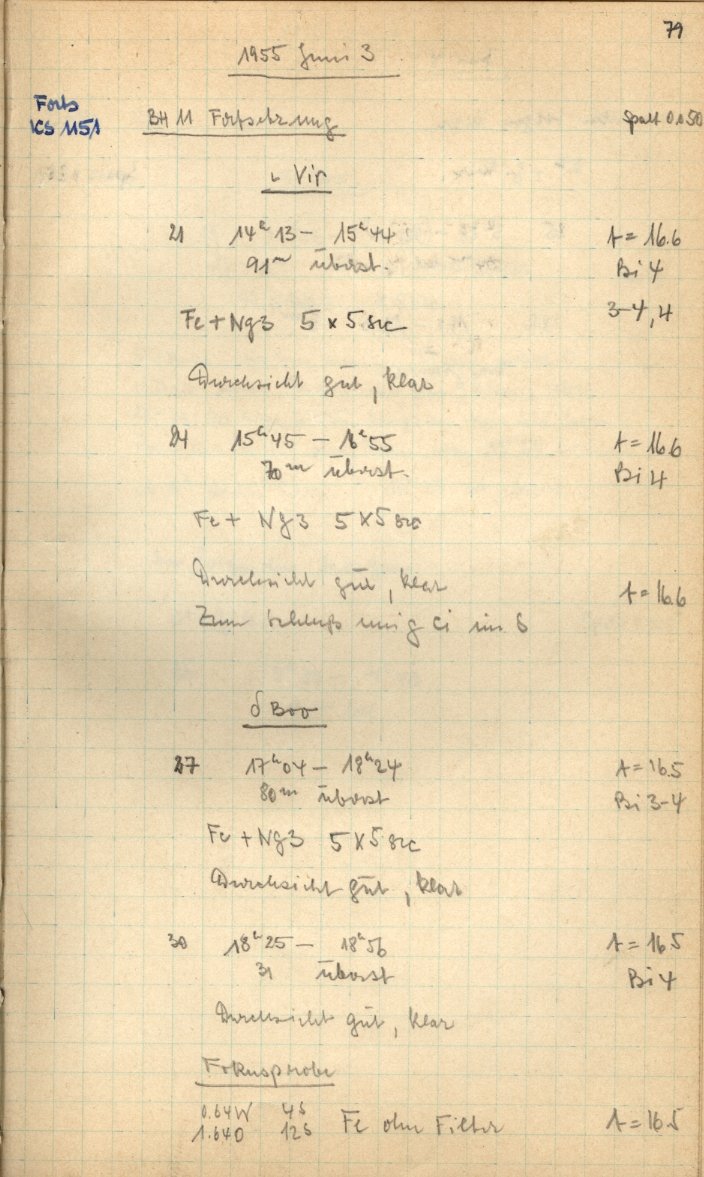 79
1955 Juni 3
Forts
KS 1151
BH 11 Fortsetzung Spalt 0.050
ι Vir
21 14ʰ13 – 15ʰ44 A = 16.6
91ᵐ überst. Bi 4
Fe + Ng3 5 x 5 sec 3-4, 4
Durchsicht gut, klar
24 15ʰ45 – 16ʰ55 A = 16.6
70ᵐ überst. Bi 4
Fe + Ng3 5 x 5 sec
Durchsicht gut, klar A = 16.6
Zum Schluß wenig Ci im S
δ Boo
27 17ʰ04 – 18ʰ24 A = 16.5
80ᵐ überst Bi 3-4
Fe + Ng3 5 x 5 sec
Durchsicht gut, klar
30 18ʰ25 – 18ʰ56 A = 16.5
31 überst Bi 4
Durchsicht gut, klar
Fokusprobe
0.64W 4S Fe ohne Filter A = 16.5
1.640 12S